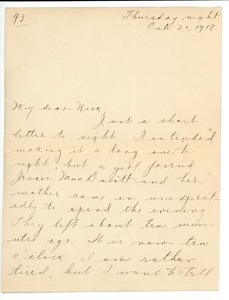 93
Thursday night
Oct 21, 1919
My dear Nick,
Just a short
letter to night. I intended
making it a long one to
night, but a girl friend
Jessie MacDavitt and her
mother came in unexpect-
edly to spend the evening.
They left about ten min-
utes ago. It is now ten
o'clock. I am rather
tired, but I want to tell